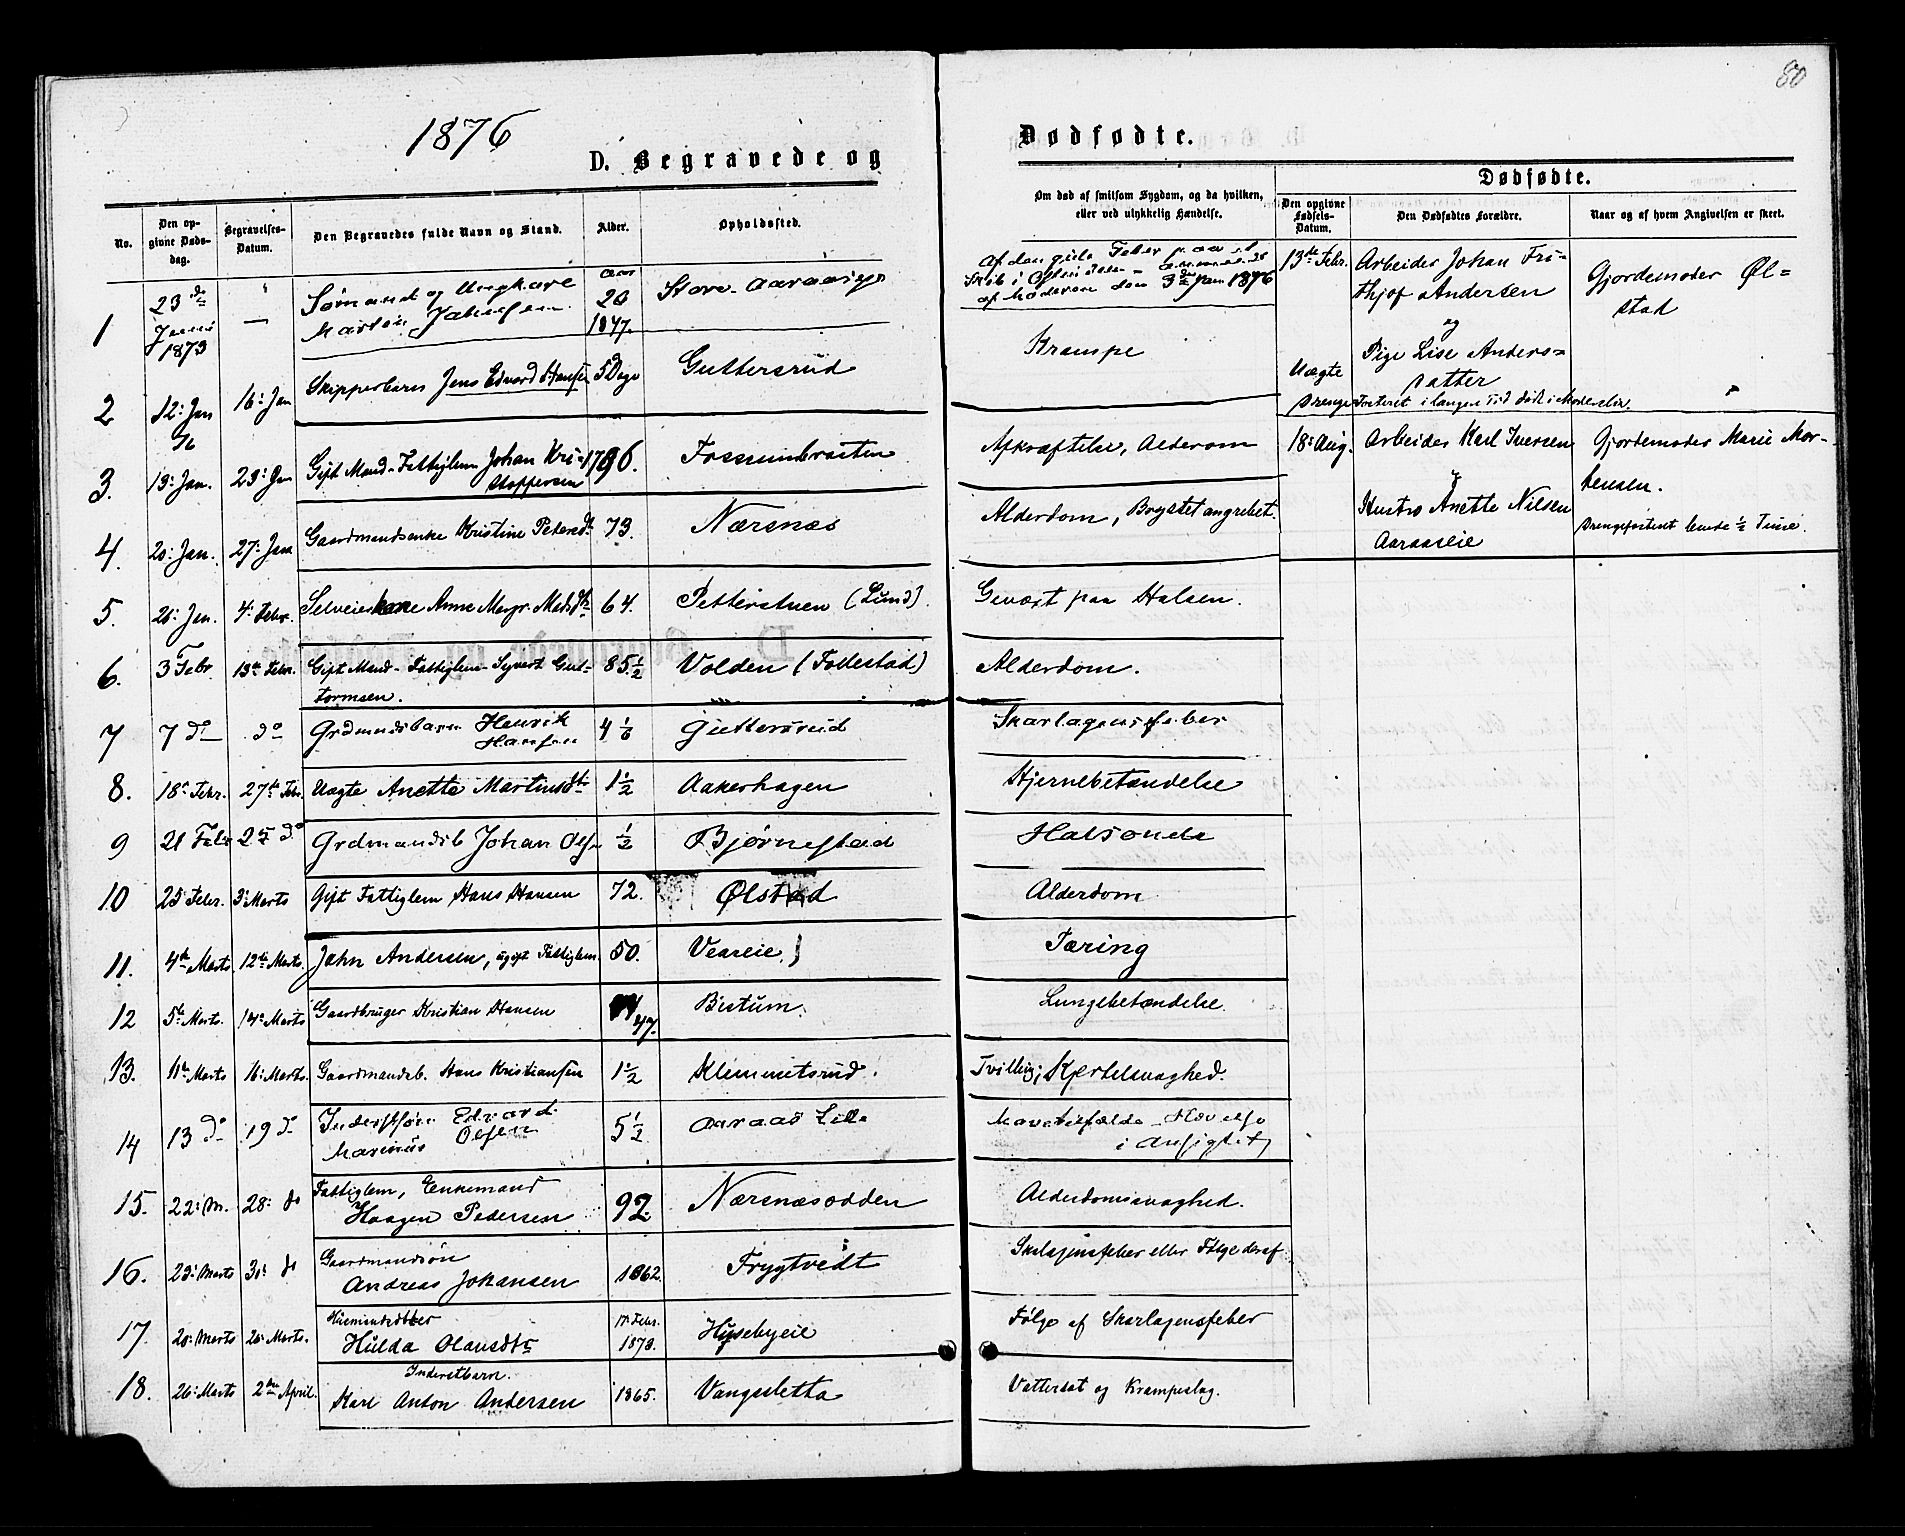 80
1876
D. Begravede og
Dødfødte.
No.
Den op-
givne Døds-
dag.
Begravelses-
Datum.
Den Begravedes fulde Navn og Stand.
Alder.
Opholdssted.
Om død af smitsom Sygdom, og da hvilken,
eller ved ulykkelig Hændelse.
Dødfødte.
Den opgivne
Fødsels-
Datum.
Den Dødfødtes Forældre.
Naar og af hvem Angivelsen er skeet.
1
23de
1873
Sømand og Ungkare
Aar
20
1847.
Store
Af den gule Feber paa et
Skib i
af Moderen den 3die Jan 1876
2
12: Jan
16: Jan
Skipperbarn Jens Edvard Hansen
5 Dage
Guttersrud
Krampe
3.
13: Jan.
23: Jan
Gift Mand - Fattiglem Johan Kri-
stoffersen
1796.
Afkræftelse, Alderdom
4.
20: Jan.
27: Jan
Gaardmandsenke Kristine Petersd.
73.
Nærsnæs
Alderdom, Brystet angrebet.
5.
26: Jan.
4: Febr.
Selveierkone Anne Margr. Madsdtr
64.
Petterstuen (Lund).
Gevæxt paa Halsen.
6.
3 Febr.
13de Febr.
Gift Mand - Fattiglem - Syvert Gut-
tormsen.
85 1/2
Volden (Follestad)
Alderdom.
7
7 do
do
Grdmandsbarn Henrik
Hansen
4 1/6
Guttersrud
Skarlagensfeber
8.
18de Febr.
27de Febr.
Uægte Anette Martinsdtr
1 1/2
Aakerhagen
Hjernebetændelse
9
21 Febr
25 do
Grdmandsb Johan Olsen
1/2
Bjørnestad
Halsonde
10
25 Febr.
3: Marts
Gift Fattiglem Hans Hansen
72.
Ølstad
Alderdom
11.
4de Marts
12te Marts.
John Andersen, ugift Fattiglem.
50.
Veaseie
Tæring
12
5te Marts.
14de Marts
Gaardbruger Kristian Hansen
47.
Bistum.
Lungebetændelse.
13.
11te Marts
16: Marts.
Gaardmandsb. Hans Kristiansen
1 1/2
Klemmitsrud.
Tvilling; Kjertelsvaghed.
14
13 do
19 do
Inderstsøn Edvard
Marinus Olsen
5 1/2
Aaraas Lille
Mavetilfælde - Hævelse
i Ansigtet
15.
22: M.
28: do
Fattiglem, Enkemand
Haagen Pedersen
92.
Nærsnæsodden
Alderdomssvaghed.
16.
23: Marts
30: do
Gaardmandsøn
Andreas Johansen
1862.
Frygtvedt
Skalagensfeber eller Følge deraf
17.
20: Marts
26: Marts.
Husmandsdatter
Hulda Olausdtr
17 Febr.
1873.
Husebyeie
Følge af Skarlagensfeber
18.
26: Marts
2den April.
Inderstbarn.
Karl Anton Andersen
1865.
Vangsletta
Vattersot og Krampeslag.
13de Febr.
Arbeider Johan Fri-
thjof Andersen
og
Pige Lise Anders-
datter
Gjordemoder Øl-
stad
Uægte
Drenge Fosteret i længere Tid død i Modersliv.
18: Aug.
Arbeider Karl Iversen
og
Hustro Anette Nilsen
Aaraaseie
Gjordemoder Marie Mor-
tensen.
Drengefosteret levede 1/2 Time.